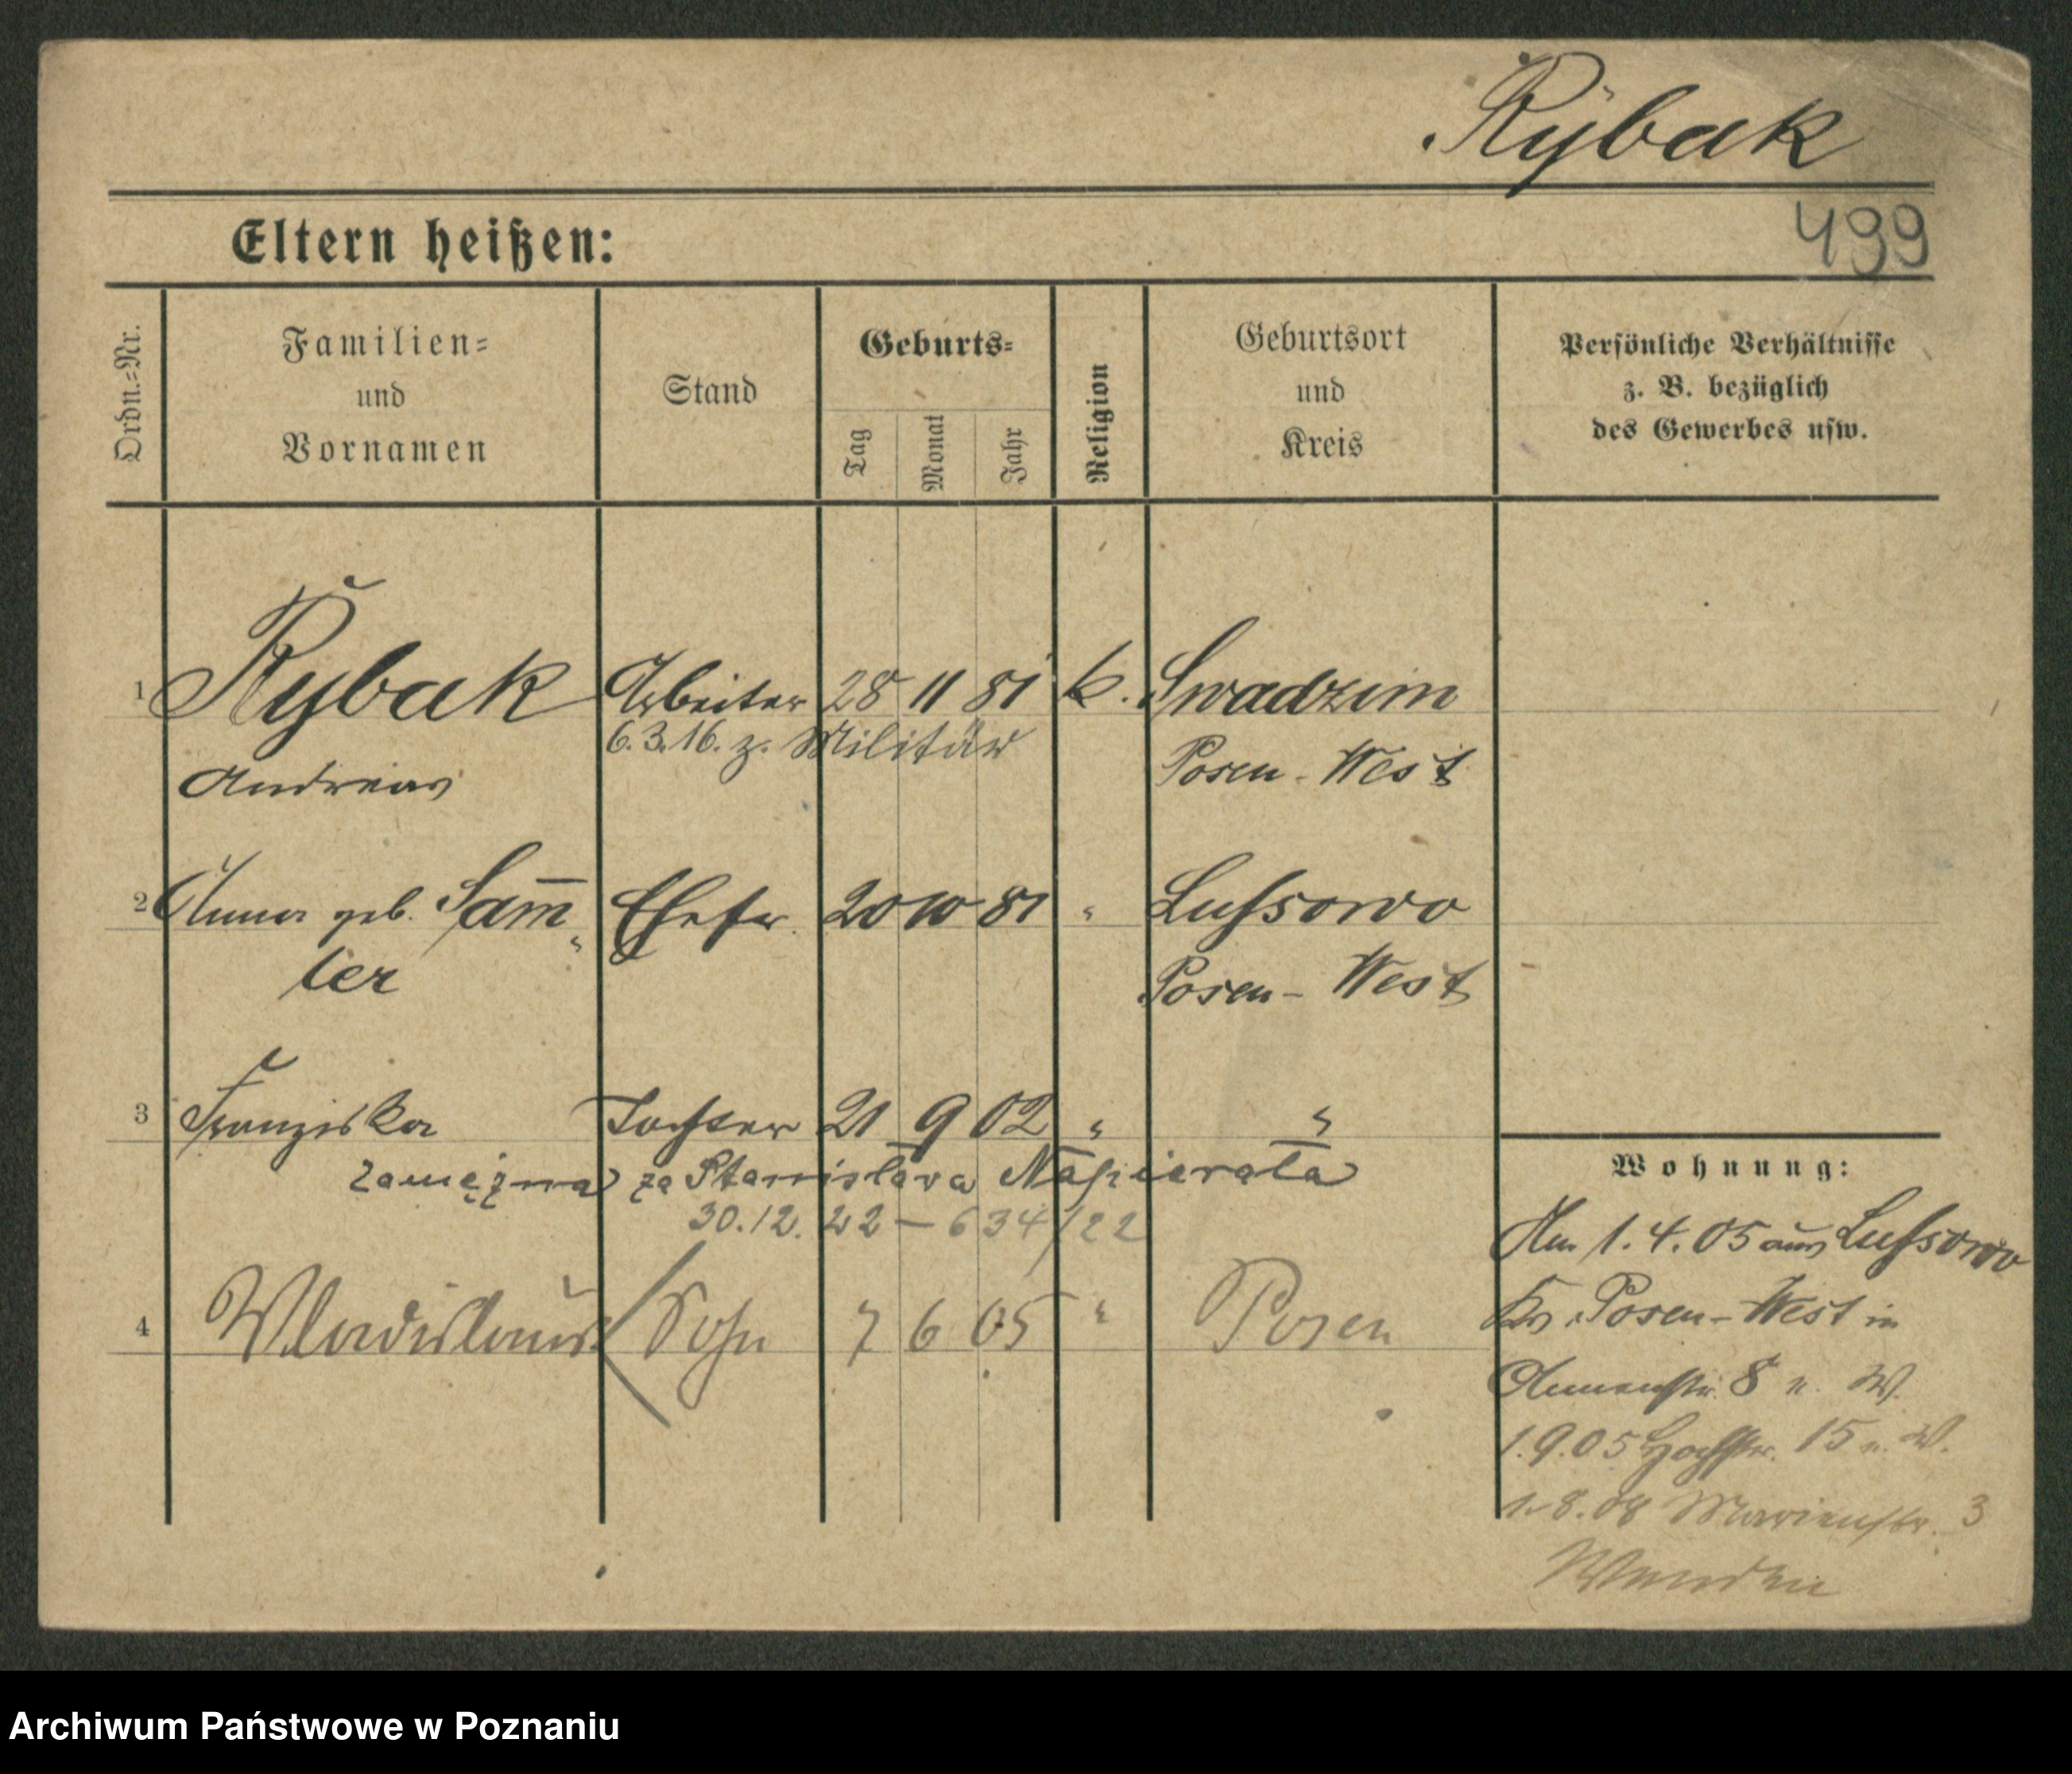 Rybak
499
Eltern heißen:
Ordn.=Nr.
Familien=
und
Vornamen
Stand
Geburts=
Tag
Monat
Jahr
Religion
Geburtsort
und
Kreis
Persönliche Verhältnisse
z. B. bezüglich
des Gewerbes usw.
1 Rybak Arbeiter 28 11 81 k. Swadzim
6.3.16. z. Militär
Andreas Posen-West
2 Anna geb. Sam̅= Ehefr. 20 10 81 " Lussowo
ter Posen-West
3 Franziska Tochter 21 9 02 " "
zamężna za Stanisława Napierała
30.12.22 – 634/22
4 Wladislaus Sohn 7 6 05 " Posen
Wohnung:
Am 1.4.05 aus Lussowo
Kr. Posen-West in
Annenstr. 8 n. W.
1.9.05 Hochstr. 15 n. W.
1.8.08 Marienstr. 3
Archiwum Państwowe w Poznaniu